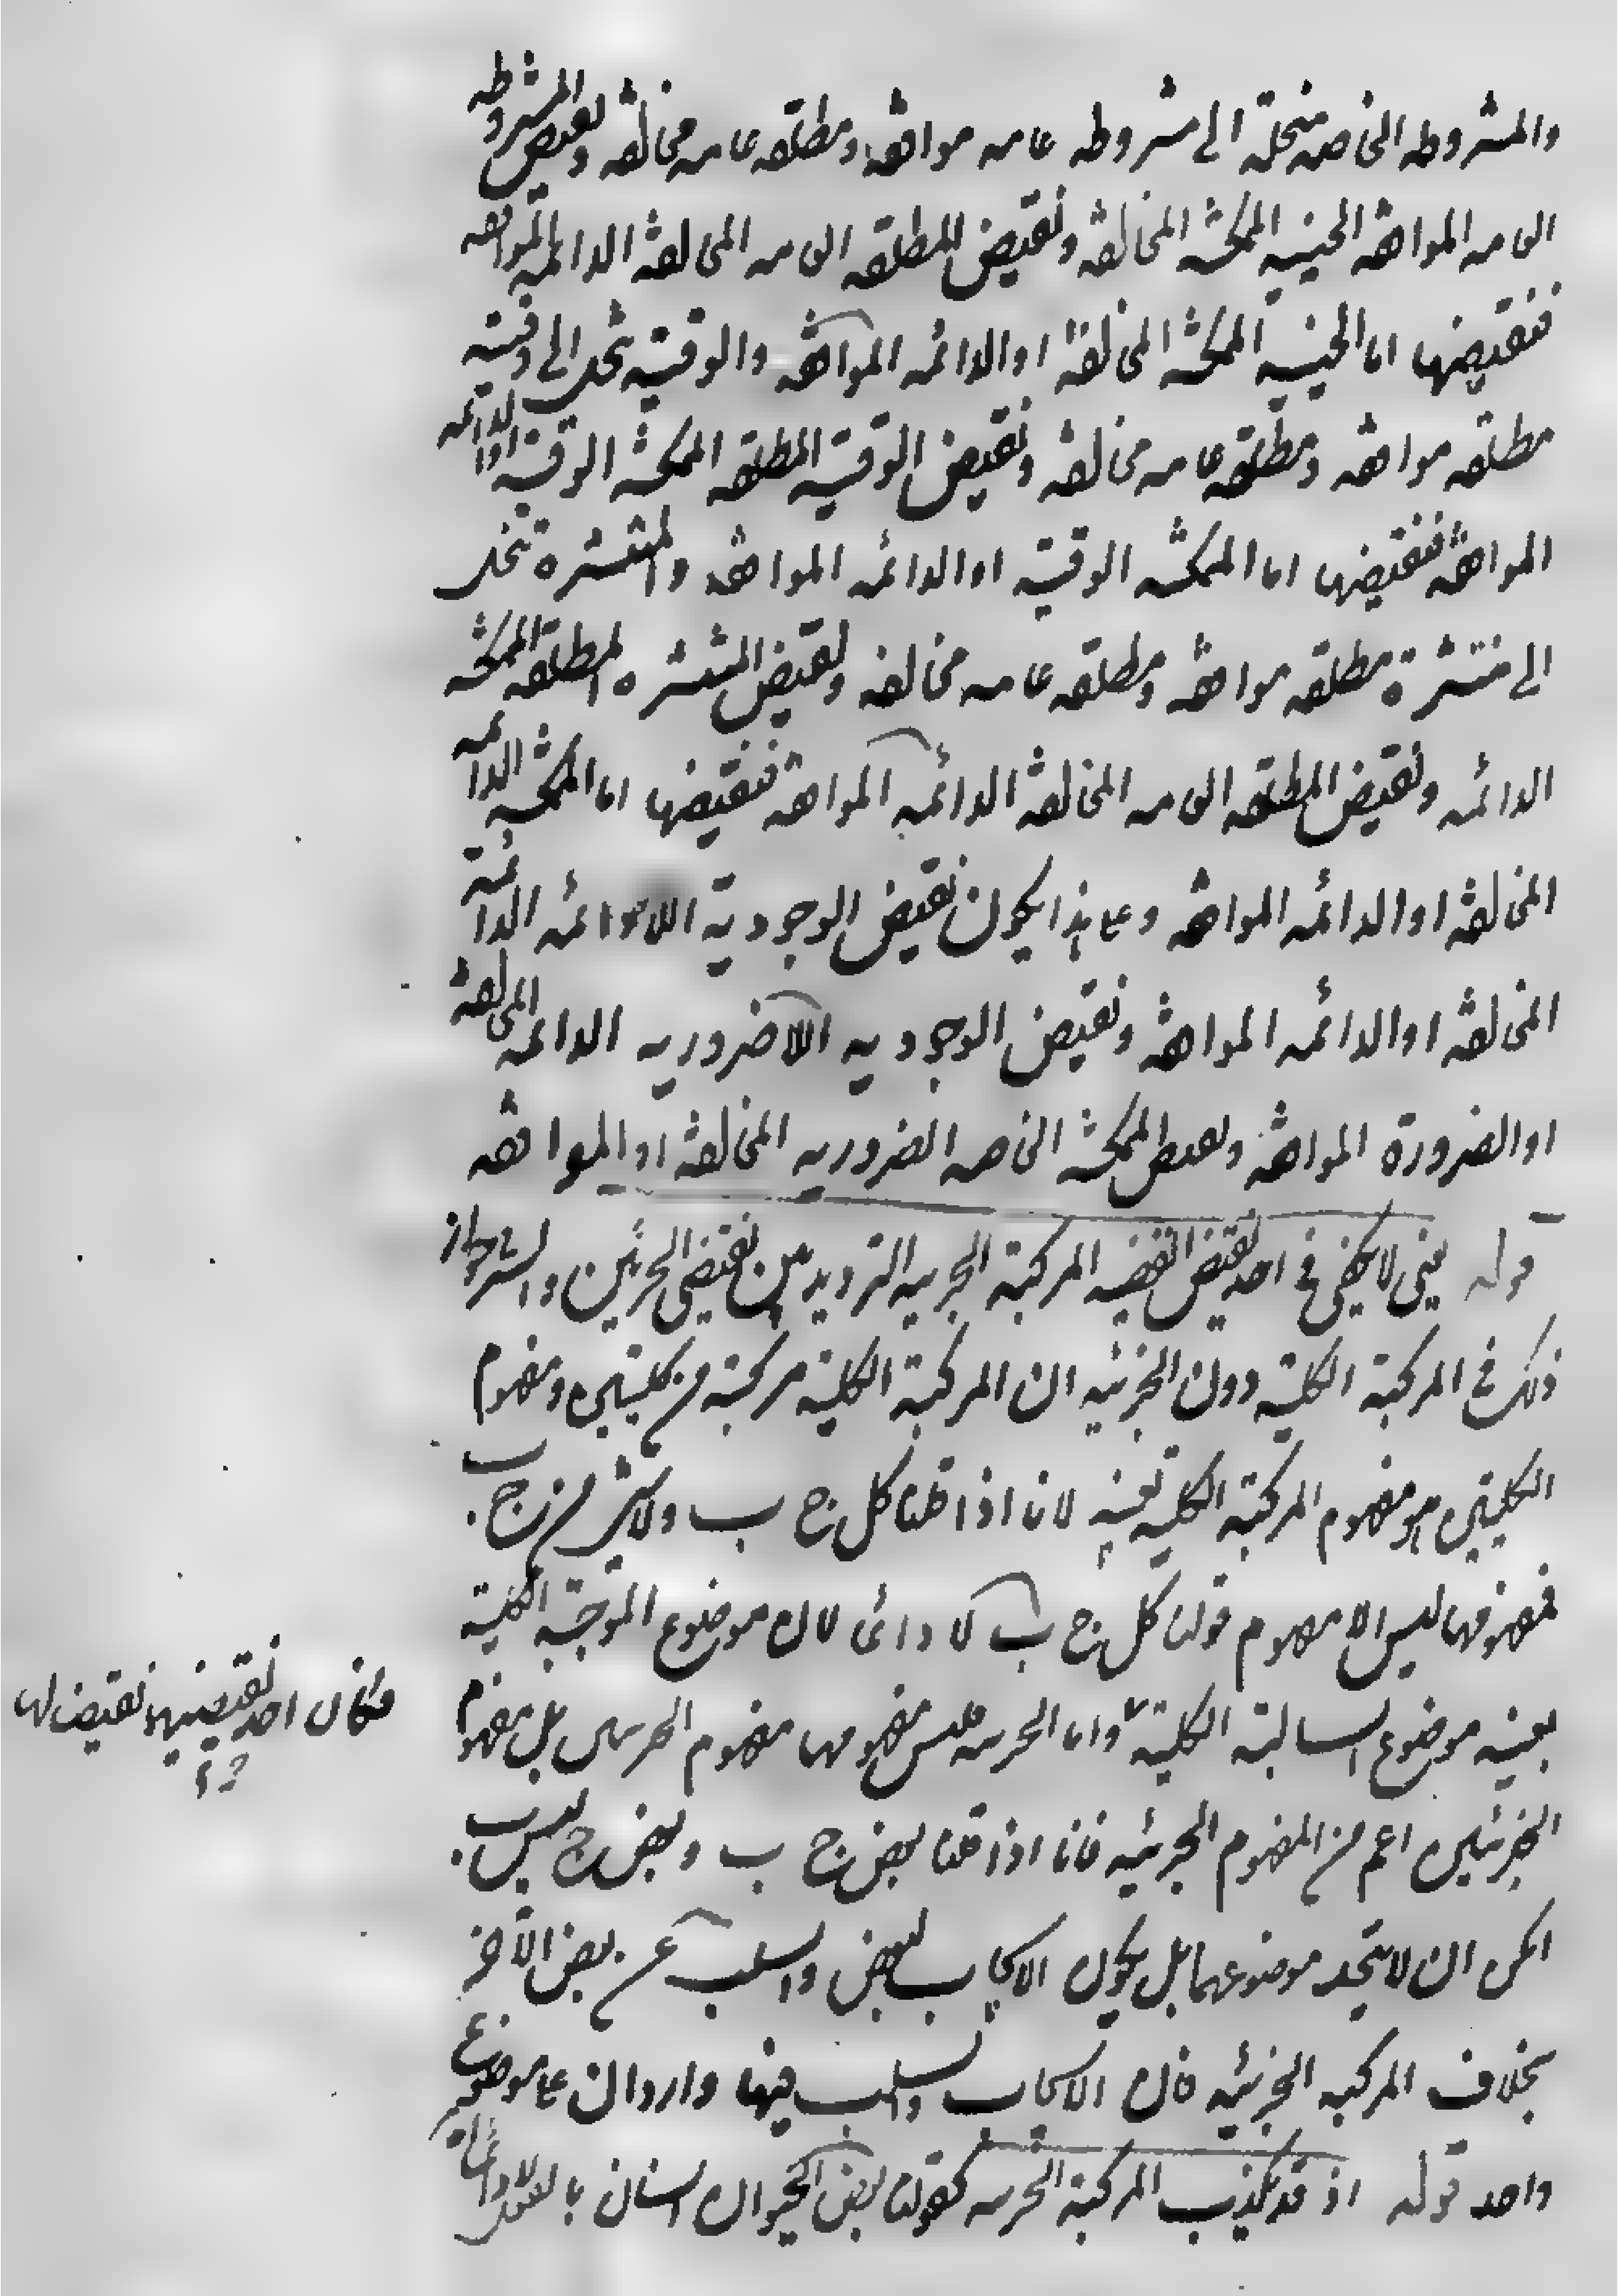 والمشروطه الخاصه منحلة الى مشروطه عامه موافقه ومطلقه عامه مخالفه ونقيض المشروطه
العامه الموافقه الحينيه الممكنه المخالفه ونقيض المطلقه العامه المخالفه الدائمه الموافقه
فنقيضها اما الحينيه الممكنه المخالفة او الدائمه الموافقه والوقتيه تنحل الى وقتية
مطلقه موافقه ومطلقه عامه مخالفه ونقيض الوقتيه المطلقه الممكنه الوقتيه او الدائمه
الموافقه فنقيضها اما الممكنه الوقتية او الدائمه الموافقه والمنتشرة تنحل
الى منتشرة مطلقه موافقه ومطلقه عامه مخالفه ونقيض المنتشره المطلقه الممكنه
الدائمه ونقيض المطلقه العامه المخالفه الدائمه الموافقه فنقيضها اما الممكنه الدائمه
المخالفه او الدائمه الموافقه وعلى هذا يكون نقيض الوجودية اللادائمه الدائمة
المخالفه او الدائمه الموافقه ونقيض الوجوديه اللاضروريه الدائمه المخالفه
او الضرورة الموافقه ونقيض الممكنه الخاصه الضروريه المخالفه او الموافقه
قوله يعني لا يكفي في احد نقيض القضيه المركبة الجزئيه الترديد بين نقيضي الجزئين والسر جواز
ذلك في المركبة الكليه دون الجزئيه ان المركبة الكلية مركبة من كليتين ومفهوم
الكليتين هو مفهوم المركبة الكليه بعينه لانا اذا قلنا كل ج ب ولا شئ من ج ب
فمفهومهما ليس الا مفهوم قولنا كل ج ب لا دائما لان موضوع الموجبة الكلية
بعينه موضوع السالبة الكلية واما الجزئيه فليس مفهومها مفهوم الجزئيتين بل مفهوم
فكان احد نقيضيهما نقيضا لها صح
الجزئيتين اعم من المفهوم الجزئيه فانا اذا قلنا بعض ج ب وبعض ج ليس ب
امكن ان لا يتحد موضوعهما بل يكون الايجاب لبعض والسلب عن بعض الآخر
بخلاف المركبه الجزئيه فان الايجاب والسلب فيها واردان على موضوع
واحد قوله اذ قد يكذب المركبة الجزئيه كقولنا بعض الحيوان انسان بالفعل لا دائما